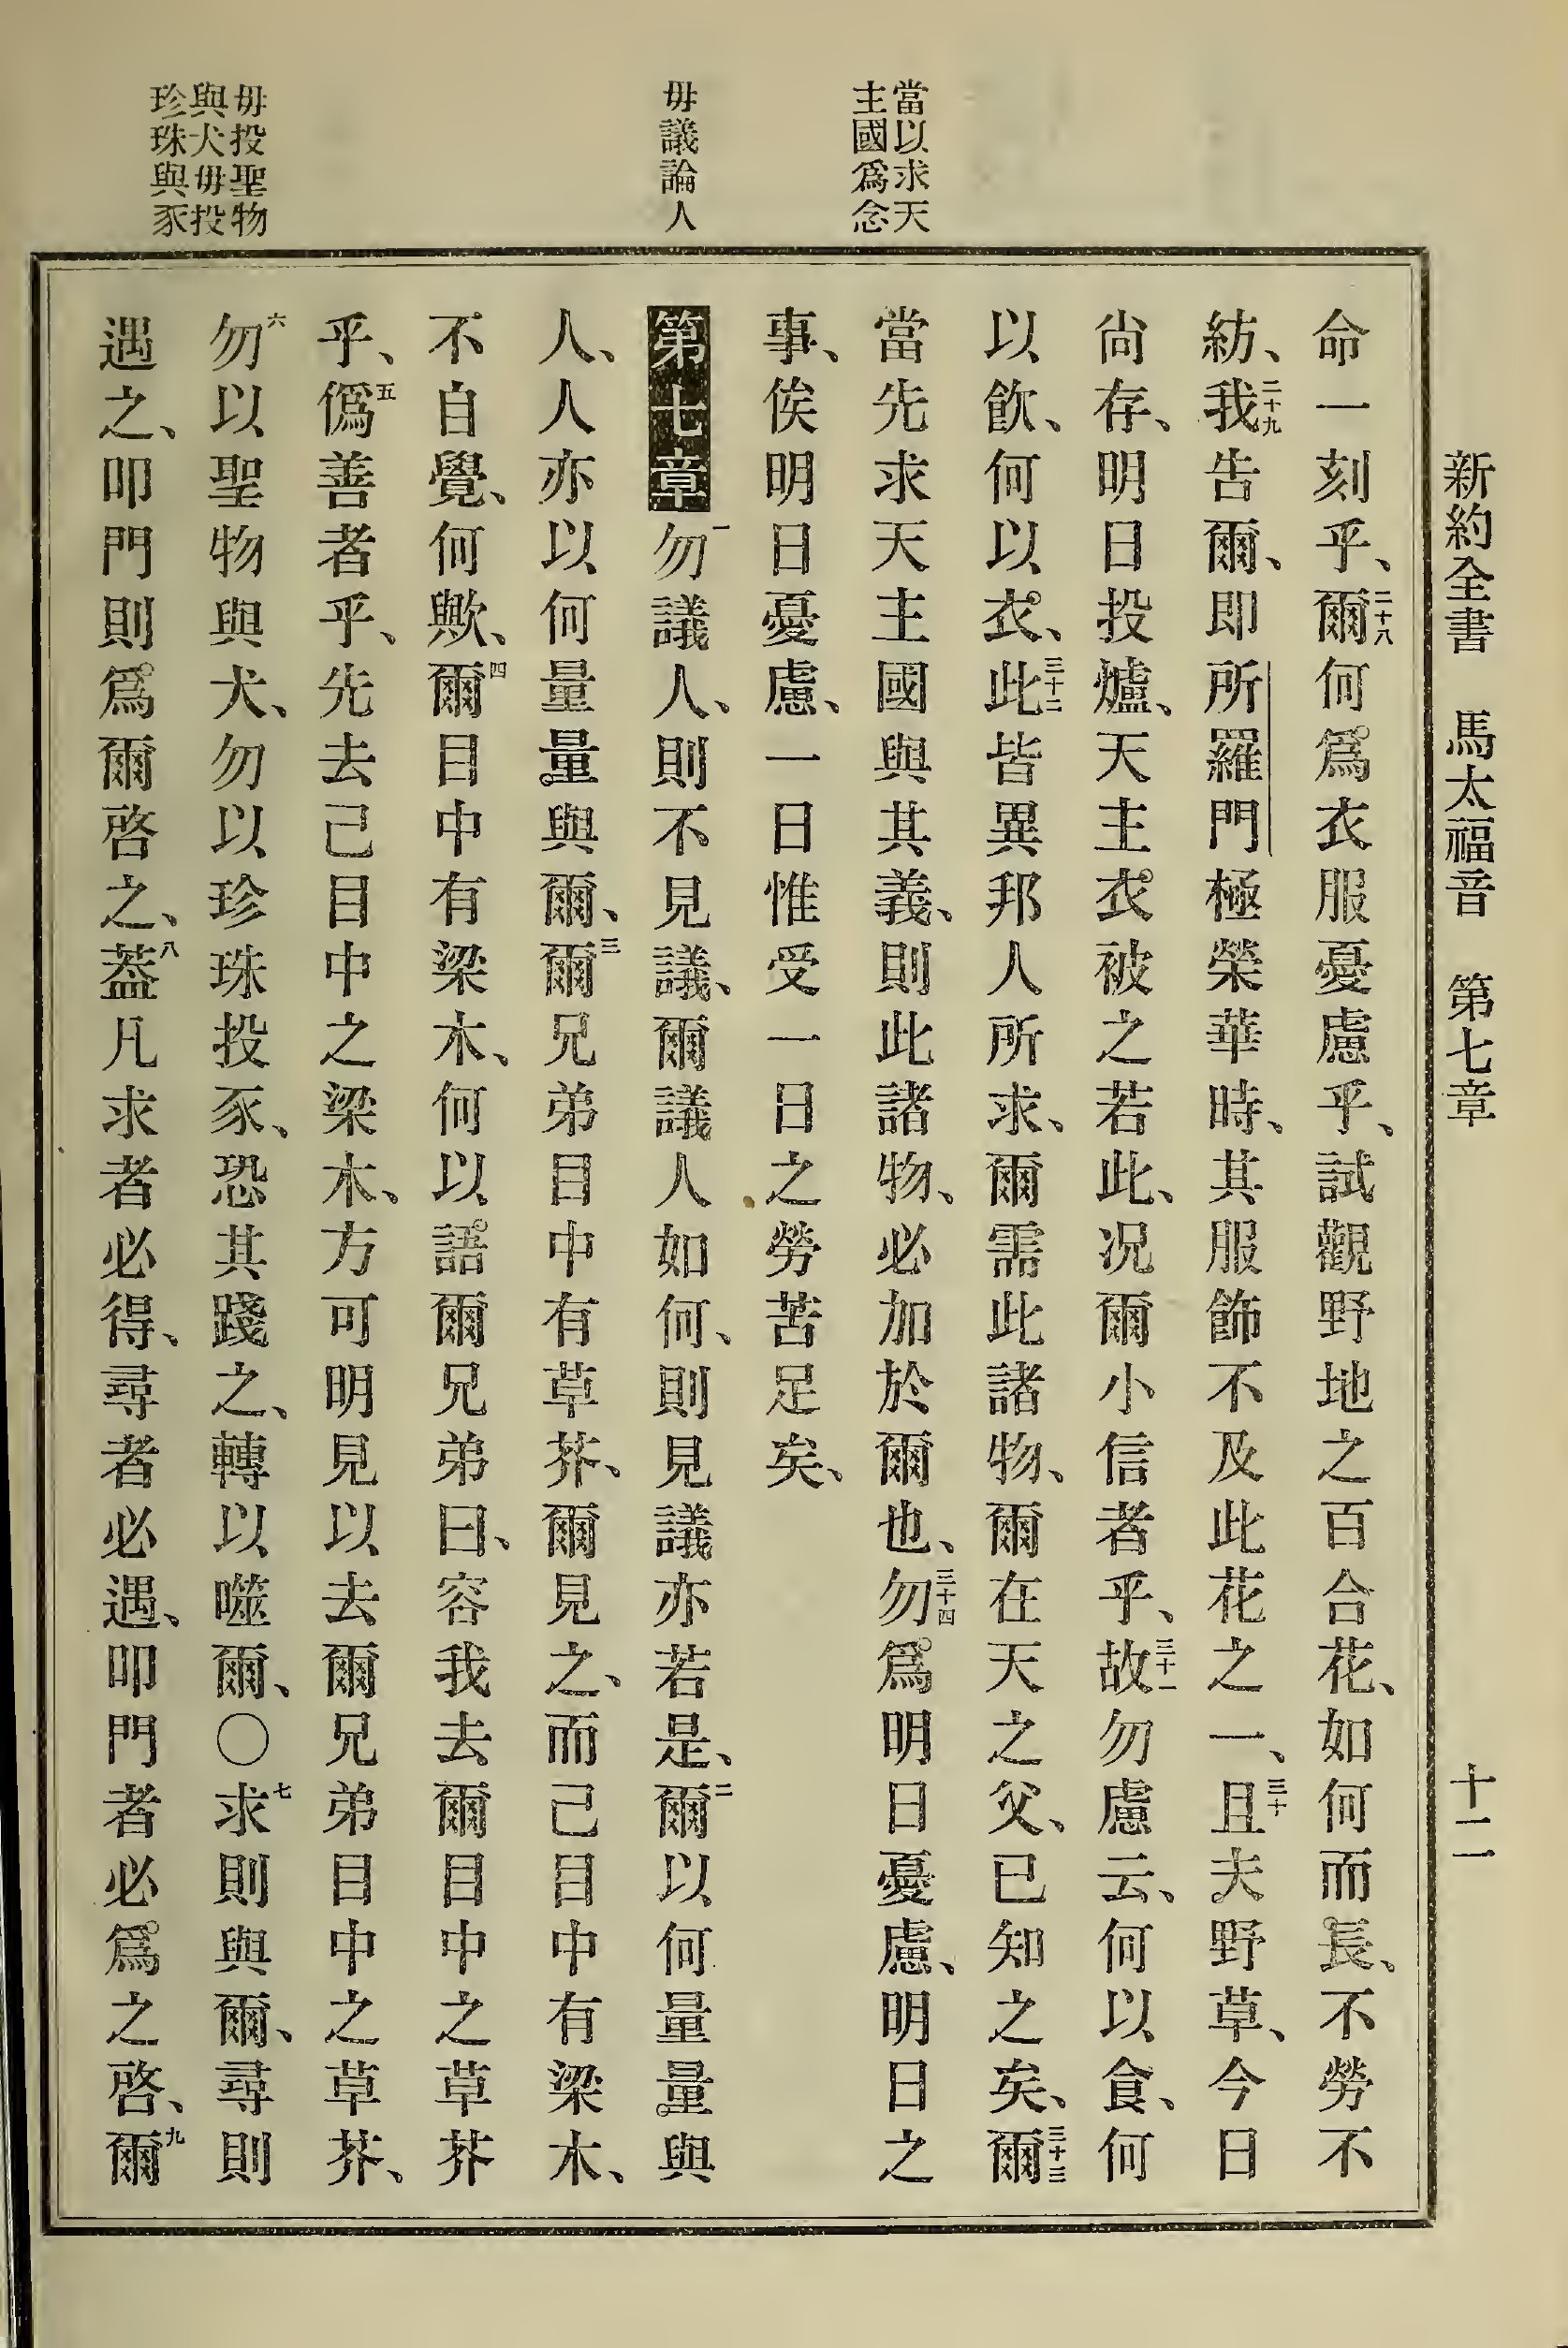 新約全書 馬太福音 第七章 十二
當以求天
主國爲念
毋議論人
毋投聖物
與犬毋投
珍珠與豕
命一刻乎、二十八爾何爲衣服憂慮乎、試觀野地之百合花、如何而長、不勞不
紡、二十九我告爾、即所羅門極榮華時、其服飾不及此花之一、三十且夫野草、今日
尙存、明日投爐、天主衣被之若此、况爾小信者乎、三十一故勿慮云、何以食、何
以飮、何以衣、三十二此皆異邦人所求、爾需此諸物、爾在天之父、已知之矣、三十三爾
當先求天主國與其義、則此諸物、必加於爾也、三十四勿爲明日憂慮、明日之
事、俟明日憂慮、一日惟受一日之勞苦足矣、
第七章 一勿議人、則不見議、爾議人如何、則見議亦若是、二爾以何量量與
人、人亦以何量量與爾、三爾兄弟目中有草芥、爾見之、而己目中有梁木、
不自覺、何歟、四爾目中有梁木、何以語爾兄弟曰、容我去爾目中之草芥
乎、五僞善者乎、先去己目中之梁木、方可明見以去爾兄弟目中之草芥、
六勿以聖物與犬、勿以珍珠投豕、恐其踐之、轉以噬爾、〇七求則與爾、尋則
遇之、叩門則爲爾啓之、八蓋凡求者必得、尋者必遇、叩門者必爲之啓、九爾